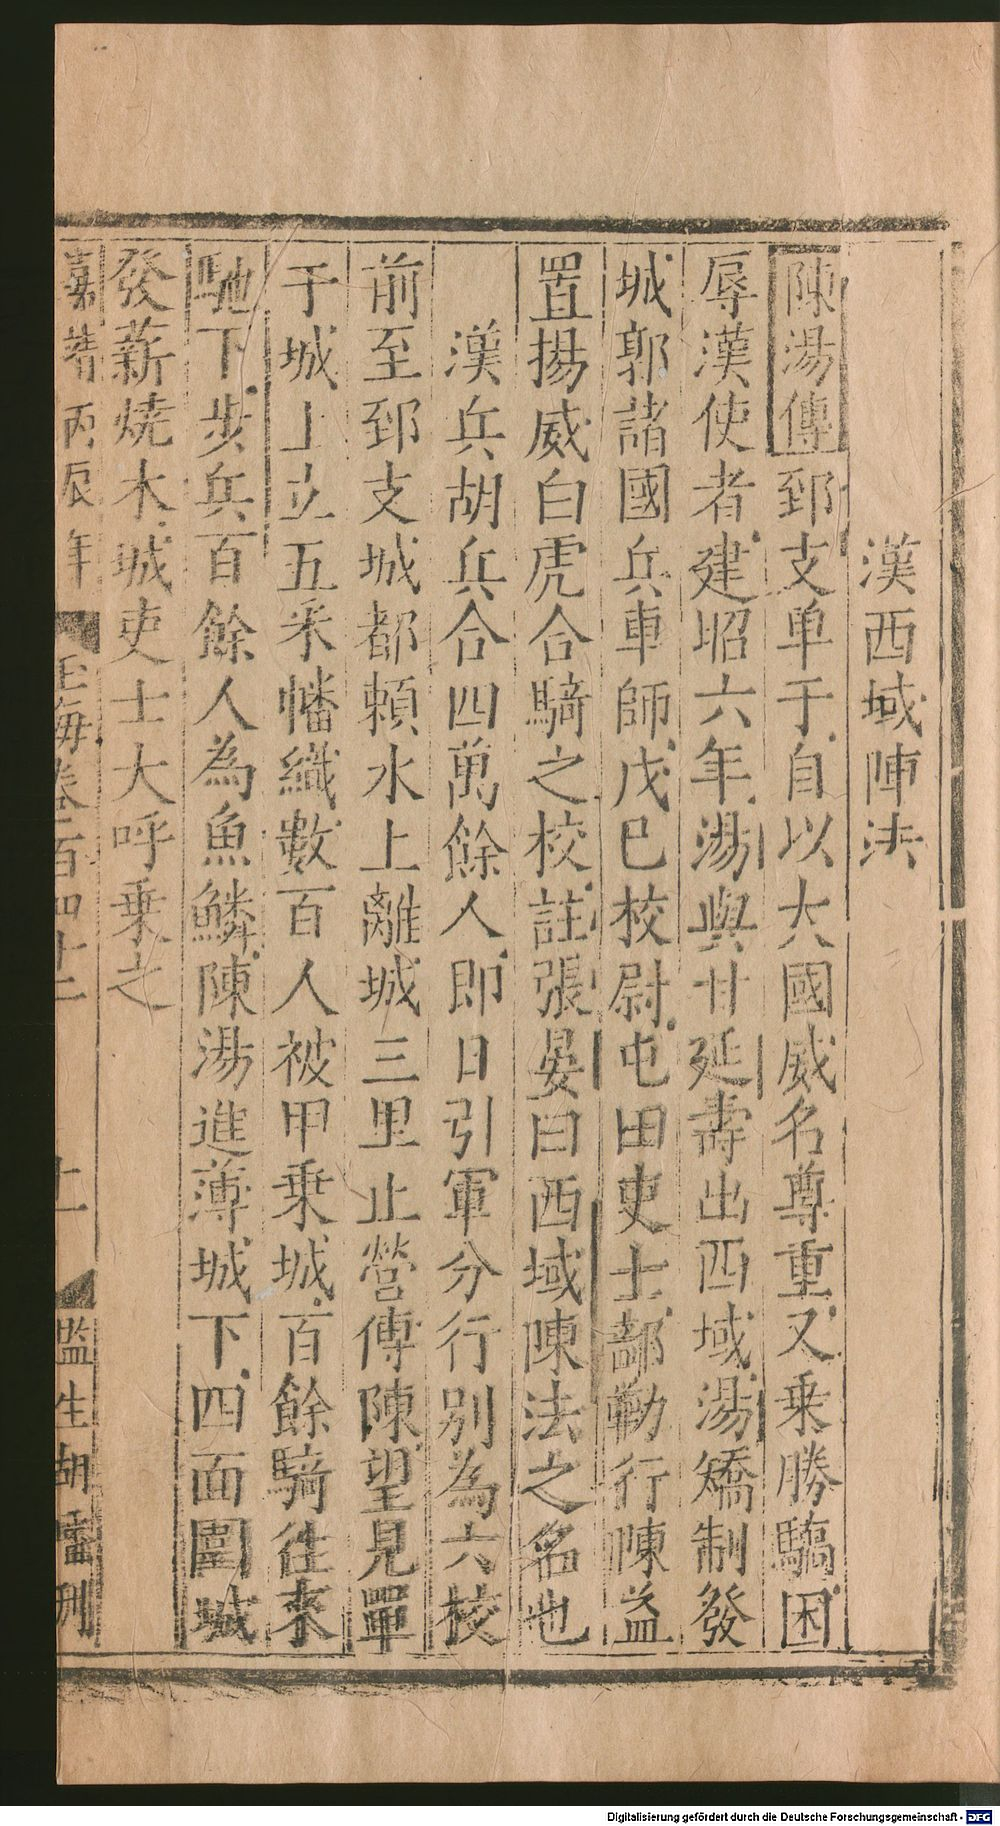 漢西域陣法
陳湯傳郅支单于自以大國威名尊重又乗勝驕困
辱漢使者建昭六年湯與甘延壽出西域湯矯制發
城郭諸國兵車師戊巳校尉屯田吏士部勒行陳益
置揚威白虎合騎之校註張晏曰西域陳法之名也
漢兵胡兵合四萬餘人即日引軍分行别為六校
前至郅支城都頼水上離城三里止營傅陳望見單
于城上立五釆幡織數百人被甲乗城百餘騎往來
馳下步兵百餘人為魚鱗陳湯進薄城下四面圍城
發薪燒木城吏士大呼乗之
嘉靖丙辰年 玉海卷一百四十二 十一 監生胡霑刋
Digitalisierung gefördert durch die Deutsche Forschungsgemeinschaft - DFG